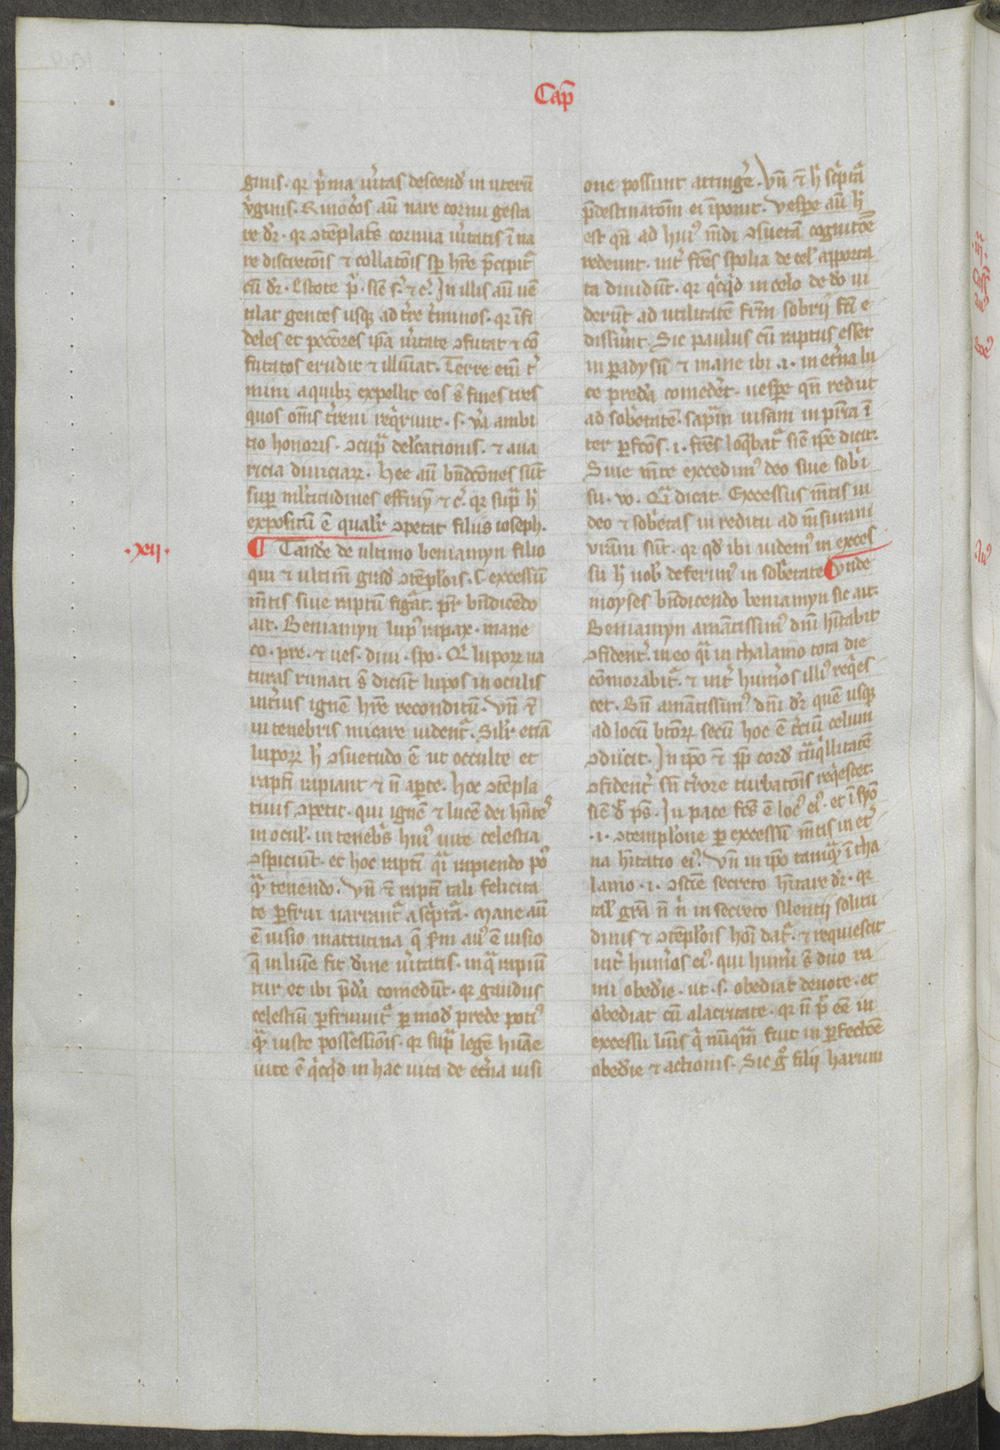 Cap̄
ginis · qꝛ p̾ma ūitas descend̾ in uterū
v̾ginis · Rinoc̾os aū nare cornu gesta
re dr̾ · qꝛ ꝯtēplat̾s cornua ūitatis ī na
re discrecōis ⁊ collatōis sp̄ hr̄e p̄cipit᷑
illis aū uē
tilat gentes usqꝫ ad t̾re t̾minos · qꝛ īfi
deles et pec̄ores ip̄a ūitate ꝯfutat ⁊ cō
futatos erudit ⁊ illūiat · Terre eīi t̾
mini a quibꝫ expellit eos s̄ fines tres
quos om̄s t̾reni req̾runt · s · v̾a ambi
tio honoris · ꝯcup̄ delc̄ationis · ⁊ aua
ricia diuiciaꝝ · Hee aū bn̄dcōnes sūt
sup̄ ml̾titudines effraym ⁊ c̾ · qꝛ sup̄ h̾
expositū ē qual̾r ꝯpetat filiis ioseph ·
· xii ·
¶ Tande de ultimo beniamyn filio
qui ⁊ ultim̄ grad̾ ꝯtēpl̾ois · s · excessū
m̄tis siue raptū figͣt · pr̾ bn̄dicendo
ait · Beniamyn lupꝰ rapax · mane
co · pre · ⁊ ues · diui · spo · Qi̾ lupoꝝ na
turas rimati s̄ dicūt lupos in oculis
int̾ius ignē hr̄e reconditū · Vn̄ ⁊
in tenebris micare uident᷑ · Sil̾r etiā
lupoꝝ h̾ ꝯsuetudo ē ut occulte et
raptī rapiant ⁊ n̄ ap̄te · hoc ꝯtēpla
tiuis ꝯpetit · qui ignē ⁊ lucē dei hn̄tes
in ocul̾ · in tenebr̾s huiꝰ uite celestia
ꝯspiciūt · et hoc raptī q̾i rapiendo pꝰ
qͣ tenendo · Vn̄ ⁊ raptī tali felicita
te p̱frui narrant᷑ a sc̾pt᷑a · Mane aū
ē uisio matutina q̄ s̄m auꝰ ē uisio
q̄ in luīe fit d̾ine ūitatis · in qͣ rapiun
tur et ibi p̄dā comedūt · qꝛ gaudiis
celestiū p̱fruunt᷑ p̱ modū prede potiꝰ
qͣ iuste possessiois · qꝛ sup̄ legē hūane
uite ē q̾cq̾d in hac uita de et̾na uisi
one possunt attinge̾ · Vn̄ ⁊ h̾ sc̾pt᷑a
p̄destinatoīi ei īponit · Vespe aū h̾
est qn̄ ad huiꝰ m̄di ꝯsuetā cognitōē
redeunt · int̾ fr̄es spolia de cel̾ apporta
ta diuidūt · qꝛ q̾cq̾d in celo de deo ui
derūt ad utilitatē fr̄m sobrii fc̄i e
disserūt · Sic paulus cū raptus esset
in paradysū ⁊ mane ibi · i · in et̾na lu
ce preda comeder̾t · uespe qn̄ rediit
ad sobrietatē · sapīam uisam in p̄ria ī
ter p̱fcōs · i · fr̄es loq̾bat᷑ sic̄ ip̄e dicit ·
Siue m̄te excedimꝰ deo siue sobri
su · vo · Qͣ dicat · Excessus m̄tis in
deo ⁊ sobrietas in reditu ad m̄suram
vr̄am sūt · qꝛ qd̾ ibi uidemꝰ in exces
su h̾ uob̾ deferimꝰ in sobrietate ¶ Vnde
moyses bn̄dicendo beniamyn sic ait ·
Beniamyn amātissimꝰ dn̄i h̄itabit
ꝯfident̾ in eo q̾i in thalamo tota die
cōmorabit᷑ · ⁊ int̾ humer̾os illiꝰ req̾es
cet · Bn̄ amātissimꝰ dn̄i dr̾ quē usqꝫ
ad locū bt̄oꝝ secū hoc ē t̾ciū celum
ꝯducit · In ip̄o ⁊ sp̄ cord̾ tn̄q̾llitatē
ꝯfident̾ sn̄ t̾rore turbatōis req̾escet ·
sic̄ d̾ ps̄ · In pace fc̄s ē locꝰ eiꝰ · et ī syō
· i · ꝯtempl̾one p̱ excessū m̄tis in et̾
na h̄itatio eiꝰ · Vn̄ in ip̄o tamqͣ ī tha
lamo · i · ꝯsc̄ie secreto h̄itare dr̾ · qꝛ
tal̾ gr̄a n̄ n̾ in secreto silentij solitu
dinis ⁊ ꝯtēpl̾ois hoī dat᷑ · ⁊ requiescit
int̾ humer̾os eiꝰ · qui humer̾i s̄ duo ra
mi obedīe · ut · s · obediat deuote · et
obediat cū alacritate · qꝛ n̄ p̄t eē in
excessu luīis q̾ nūqͣm fuit in p̱fectōē
obedīe ⁊ actionis · Sic g̊ filii harum